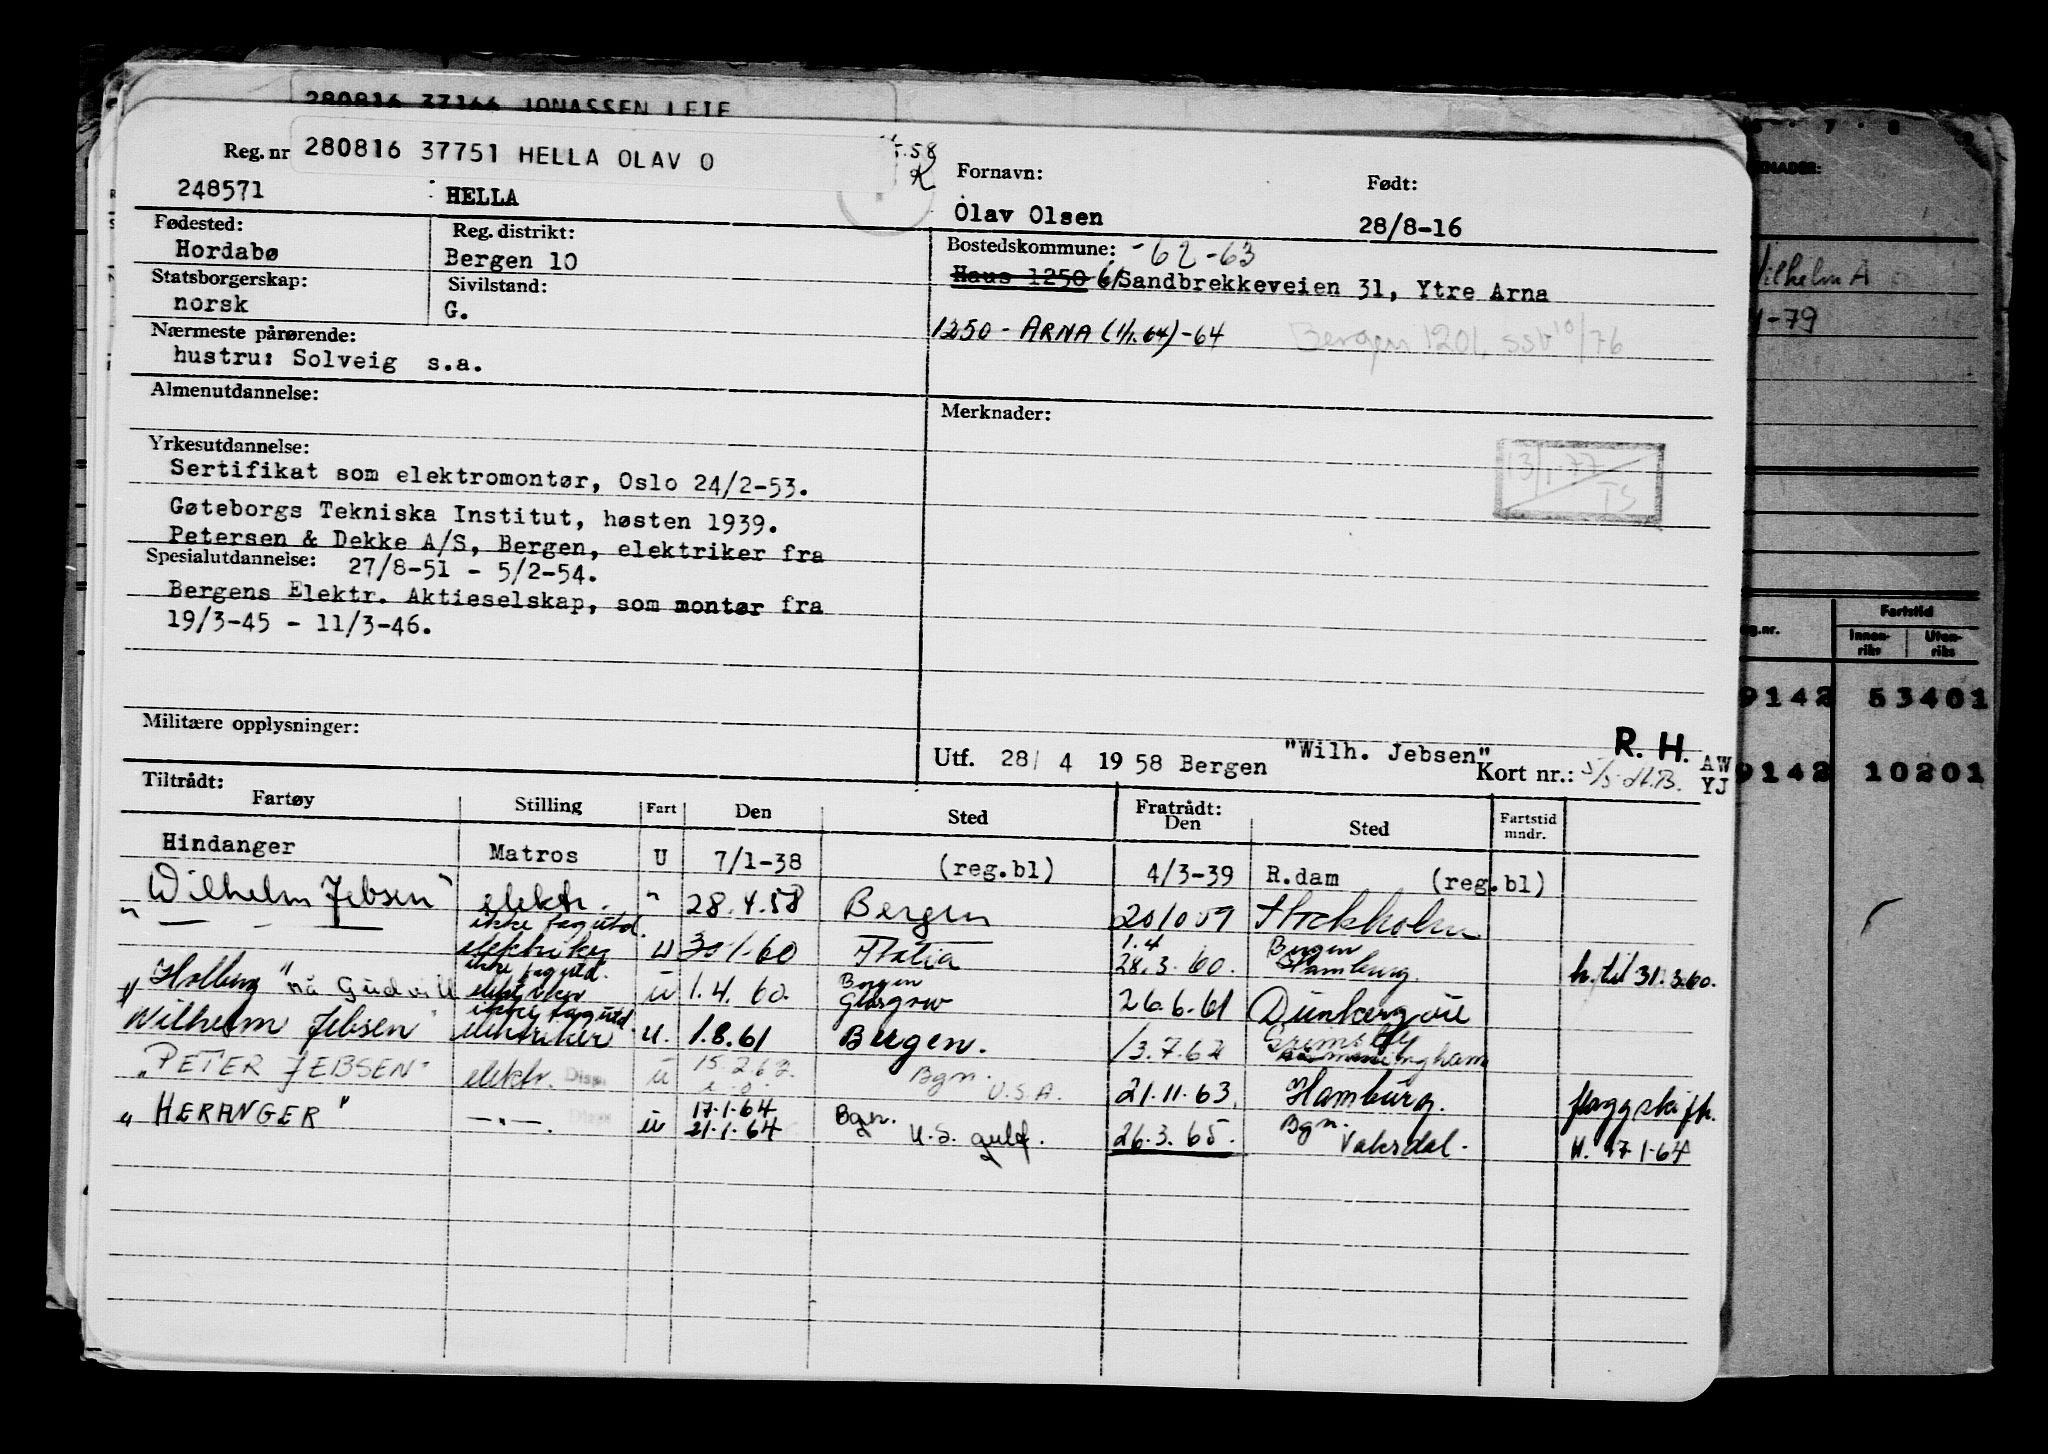 280816 37166 JONASSEN LEIF
Reg. nr 280816 37751 HELLA OLAV O
248571 HELLA
Fornavn: Født:
Olav Olsen 28/8-16
Fødested: Reg. distrikt: Bostedskommune: -62-63
Hordabø Bergen 10 Haus 1250 61 Sandbrekkeveien 31, Ytre Arna
Statsborgerskap: Sivilstand:
norsk G.
1250 - ARNA (1/1.64)-64 Bergen 1201 ssb 10/76
Nærmeste pårørende:
hustru: Solveig s.a.
Almenutdannelse: Merknader:
Yrkesutdannelse:
Sertifikat som elektromontør, Oslo 24/2-53.
13/1-77
TS
Gøteborgs Tekniska Institut, høsten 1939.
Petersen & Dekke A/S, Bergen, elektriker fra
Spesialutdannelse: 27/8-51 - 5/2-54.
Bergens Elektr. Aktieselskap, som montør fra
19/3-45 - 11/3-46.
Militære opplysninger:
R. H.
Utf. 28/ 4 1958 Bergen "Wilh. Jebsen" Kort nr.: AW
YJ
Tiltrådt: Fratrådt:
Fartøy Stilling Fart Den Sted Den Sted Fartstid mndr.
Hindanger Matros U 7/1-38 (reg.bl) 4/3-39 R.dam (reg.bl)
Wilhelm Jebsen" elektr. " 28.4.58 Bergen 201059 Stockholm
" — - — ikke fagutd. elektriker U 30 1-60 Italia 1.4 28.3.60. Bergen Hamburg. h. til 31.3.60.
"Holberg" nå Gudvill ikke fagutd. elektriker u 1.4.60. Bergen Glasgow 26.6.61 Dunkerque
"Wilhelm Jebsen" ikke fagutd. elektriker u. 1.8.61 Bergen. 13.7.62 Grimsby
"PETER JEBSEN" elektr. Disp. u 15.2.62. Bgn. U.S.A. 21.11.63. Hamburg. flaggskift.
"HERANGER" —"—. Disp u 17.1.64 21.1.64 Bgn. U.S. gulf. 26.3.65. Bgn. Vaksdal. H. 17-1-64
6 · 7 · 8
Vilhelm A
-79
Fartstid
Innen-riks Uten-riks
9142 53401
9142 10201